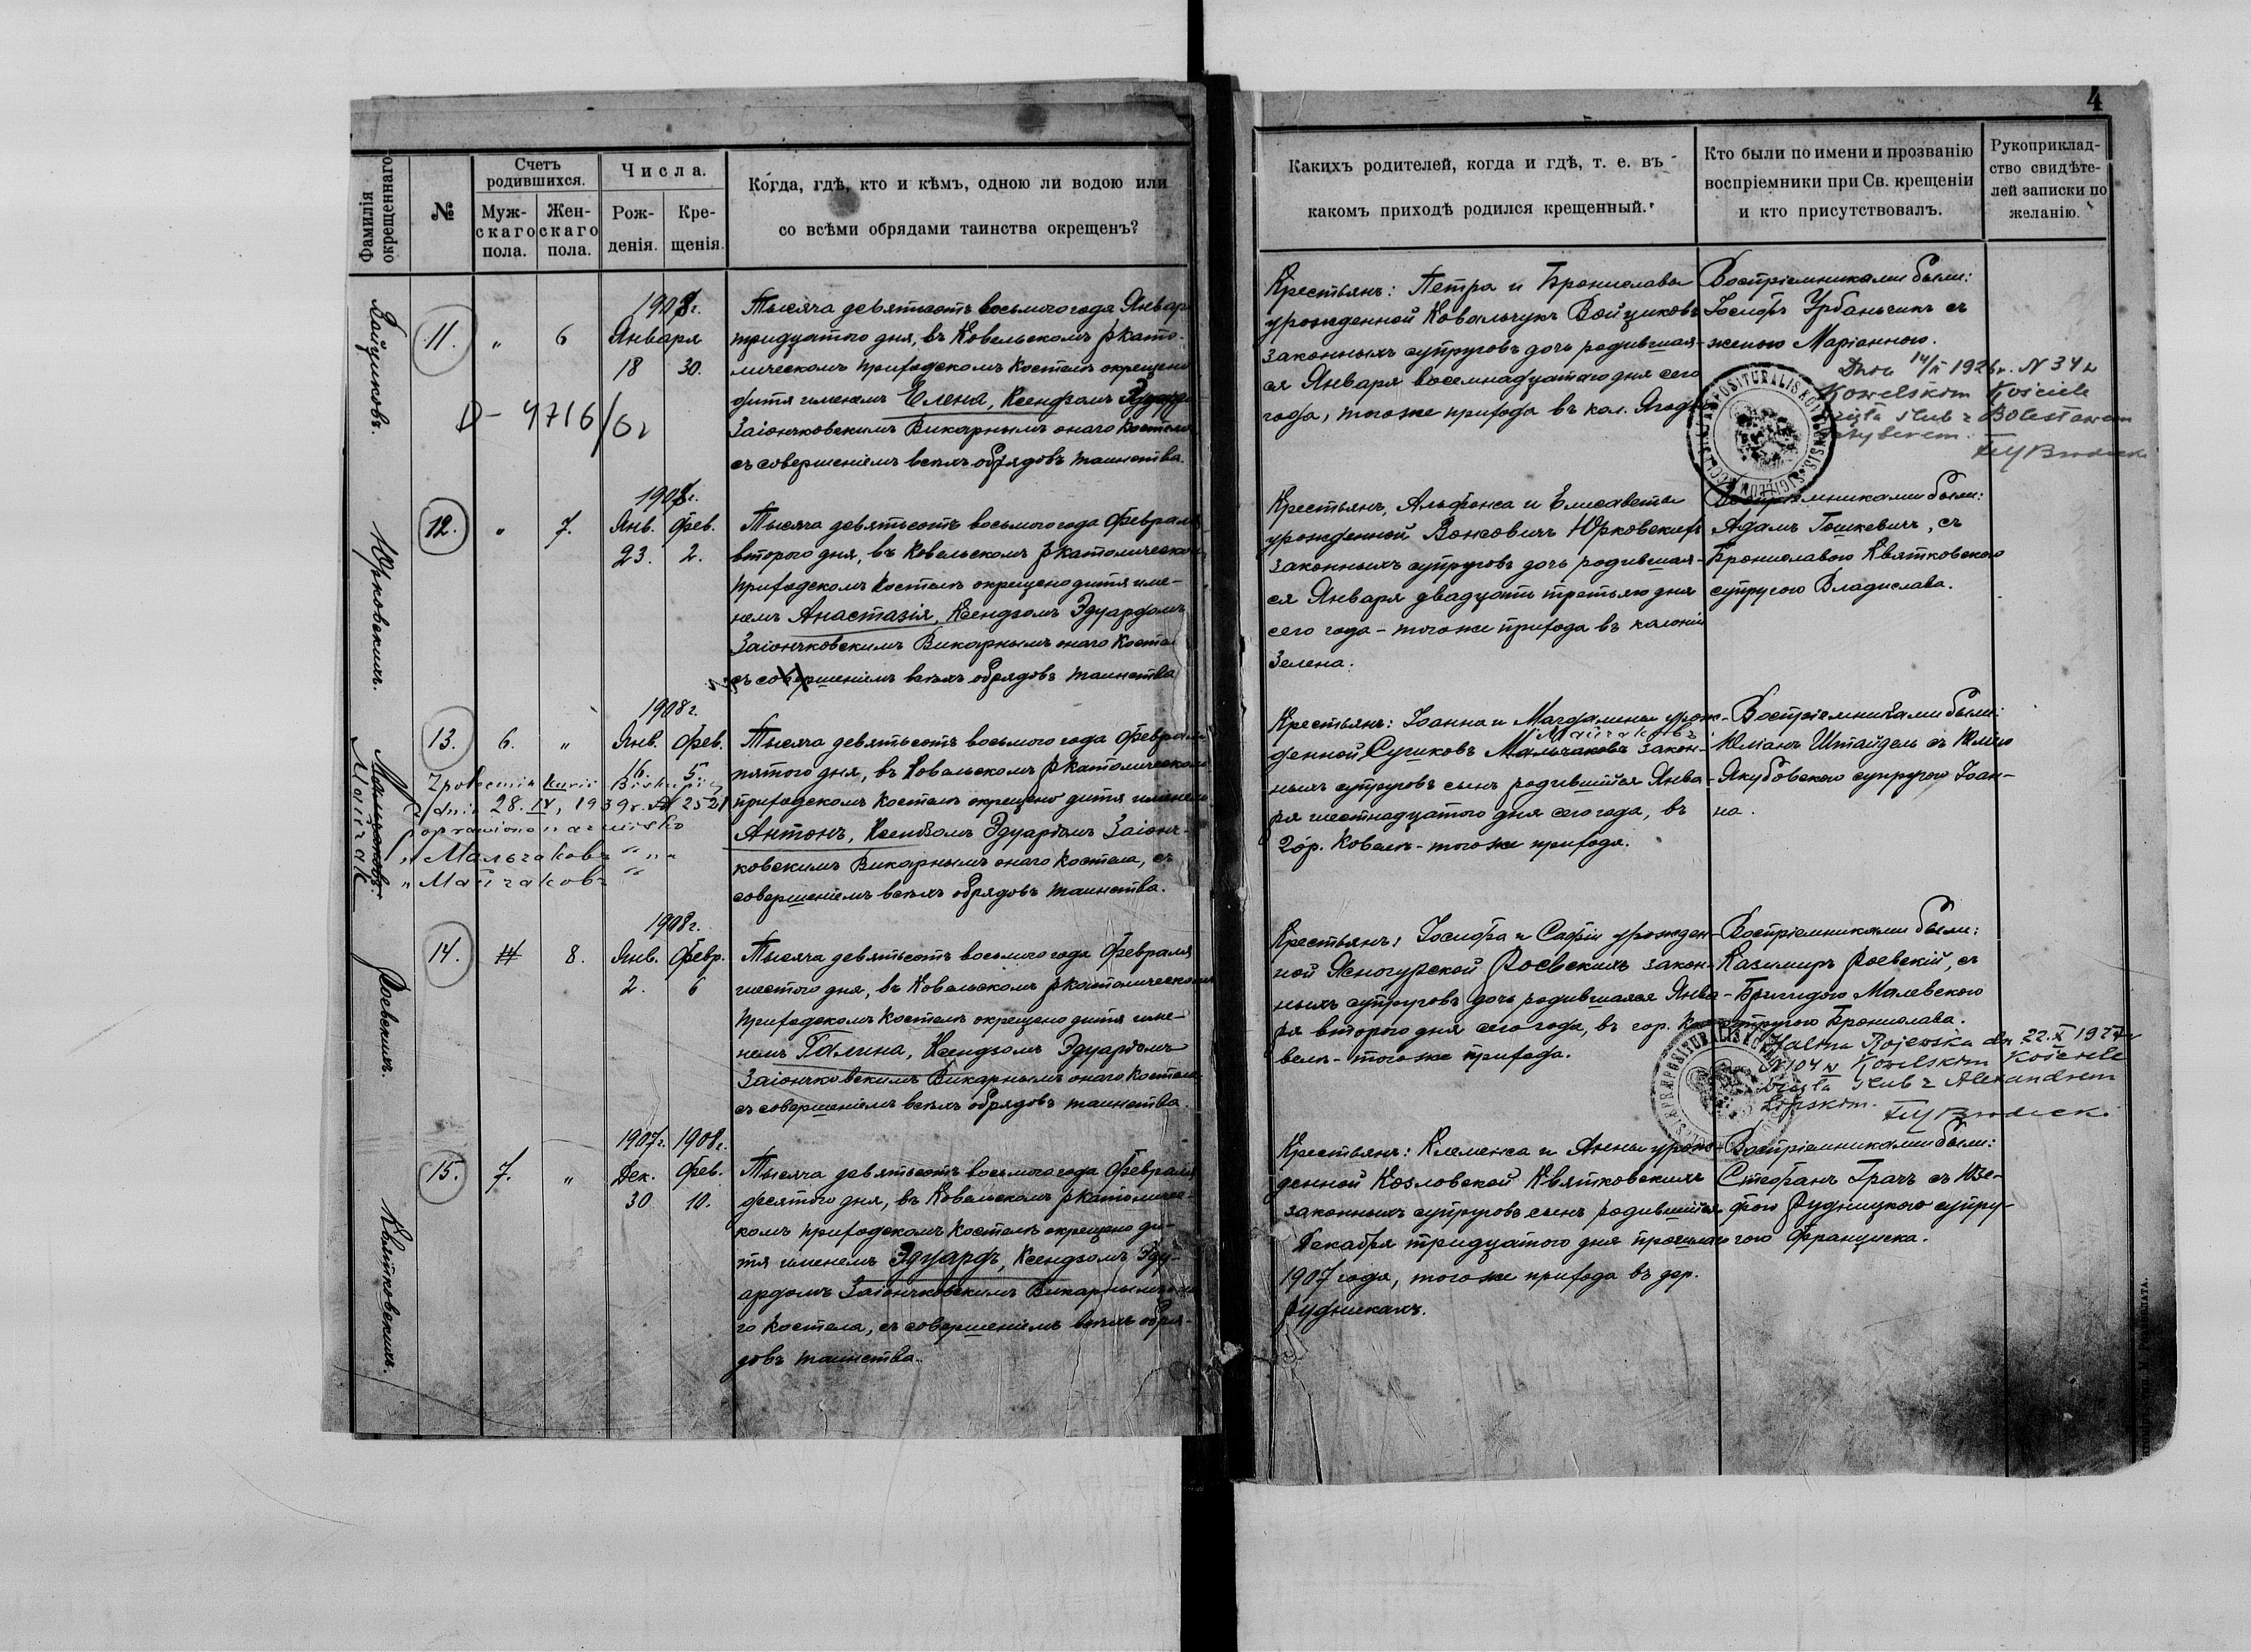 4
Фамилія окрещеннаго
№
Счетъ родившихся.
Муж-
скаго
пола.
Жен-
скаго
пола.
Числа.
Рож-
денія.
Кре-
щенія.
Когда, гдѣ, кто и кѣмъ, одною ли водою или
со всѣми обрядами таинства окрещенъ?
Какихъ родителей, когда и гдѣ, т. е. въ
какомъ приходѣ родился крещенный.
Кто были по имени и прозванію
воспріемники при Св. крещеніи
и кто присутствовалъ.
Рукоприклад-
ство свидѣте-
лей записки по
желанію.
Войциковъ.
11.
" 6
1908г.
Января
18 30.
D-4716/62
Тысяча девятьсотъ восьмого года Января
тридцатого дня, въ Ковельскомъ р катo-
лическомъ приходскомъ костелѣ окрещено
дитя именемъ Елена, Ксендзомъ Эдуардомъ
Заіончковскимъ Викарнымъ онаго костела
съ совершеніемъ всѣхъ обрядовъ таинства.
Крестьянъ: Петра и Брониславы
урожденной Ковальчукъ Войциковъ
законныхъ супруговъ дочь родившая-
ся Января восемнадцатого дня сего
года, того же прихода въ кол.
Воспріемниками были:
Іосифъ Урбаньчикъ съ
женою Маріанною.
Dnia 14/II 1926 r. N 34 w
Kowelskim Kościele
wzięła ślub z Bolesławem
Юрковскихъ.
12.
" 7.
1908г.
Янв. Фев.
23. 2.
Тысяча девятьсотъ восьмого года Февраля
второго дня, въ Ковельскомъ р католическомъ
приходскомъ костелѣ окрещено дитя име-
немъ Анастазія, Ксендзомъ Эдуардомъ
Заіончковскимъ Викарнымъ онаго костела
съ совершеніемъ всѣхъ обрядовъ таинства
Крестьянъ, Альфонса и Елисаветы
урожденной Вонсовичъ Юрковскихъ
законныхъ супруговъ дочь родившая-
ся Января двадцать третьяго дня
сего года - того же прихода въ колоніи
Зелена.
Воспріемниками были:
Адамъ Гошкевичъ, съ
Брониславою Квятковскою
супругою Владислава.
Мальчаковъ.
Majczak
13.
6. "
1908г.
Янв. Фев.
16. 5.
Z polecenia kurii Biskupiej
z dnia 28.IV, 1939 r. № 2521
poprawiono nazwisko
„Мальчаковъ" na
„Майчаковъ"
Тысяча девятьсотъ восьмого года Февраля
пятого дня, въ Ковельскомъ р католическомъ
приходскомъ костелѣ окрещено дитя именемъ
Антонъ, Ксендзомъ Эдуардомъ Заіонч-
ковскимъ Викарнымъ онаго костела, съ
совершеніемъ всѣхъ обрядовъ таинства.
Крестьянъ: Іоанна и Магдалины урож-
Майчаковъ
денной Сугиковъ Мальчаковъ закон-
ныхъ супруговъ сынъ родившійся Янва-
ря шестнадцатого дня сего года, въ
гор. Ковелѣ - того же прихода.
Воспріемниками были:
Юліанъ Штайдель съ Юліею
Якубовскою супругою Іоан-
на.
Роевскихъ.
14.
8.
1908г.
Янв. Февр.
2. 6
Тысяча девятьсотъ восьмого года Февраля
шестого дня, въ Ковельскомъ р католическомъ
приходскомъ костелѣ окрещено дитя име-
немъ Галина, Ксендзомъ Эдуардомъ
Заіончковскимъ Викарнымъ онаго костела
съ совершеніемъ всѣхъ обрядовъ таинства.
Крестьянъ: Іосифа и Софіи урожден-
ной Ясногурской Роевскихъ закон-
ныхъ супруговъ дочь родившаяся Янва-
ря второго дня сего года, въ гор. Ко-
велѣ - того же прихода.
Воспріемниками были:
Казимиръ Роевскій, съ
Бригидою Малевскою
супругою Бронислава.
Halina Rojewska dn 22.X 1927 r
N 104 w Kowelskim Kościele
wzięła ślub z Alexandrem
Lipskim.
Квятковскихъ.
15.
7. "
1907г. 1908г.
Дек. Фев.
30 10.
Тысяча девятьсотъ восьмого года Февраля
десятого дня, въ Ковельскомъ р католичес-
комъ приходскомъ костелѣ окрещено ди-
тя именемъ Эдуардъ, Ксендзомъ Эду-
ардомъ Заіончковскимъ Викарнымъ она-
го костела, съ совершеніемъ всѣхъ обря-
довъ таинства.
Крестьянъ: Клеменса и Анны урож-
денной Козловской Квятковскихъ
законныхъ супруговъ сынъ родившійся
Декабря тридцатого дня прошлаго
1907 года, того же прихода въ дер.
Рудникахъ.
Воспріемниками были:
Стефанъ Грачъ съ Юзе-
фою Рудницкою супру-
гою Франциска.